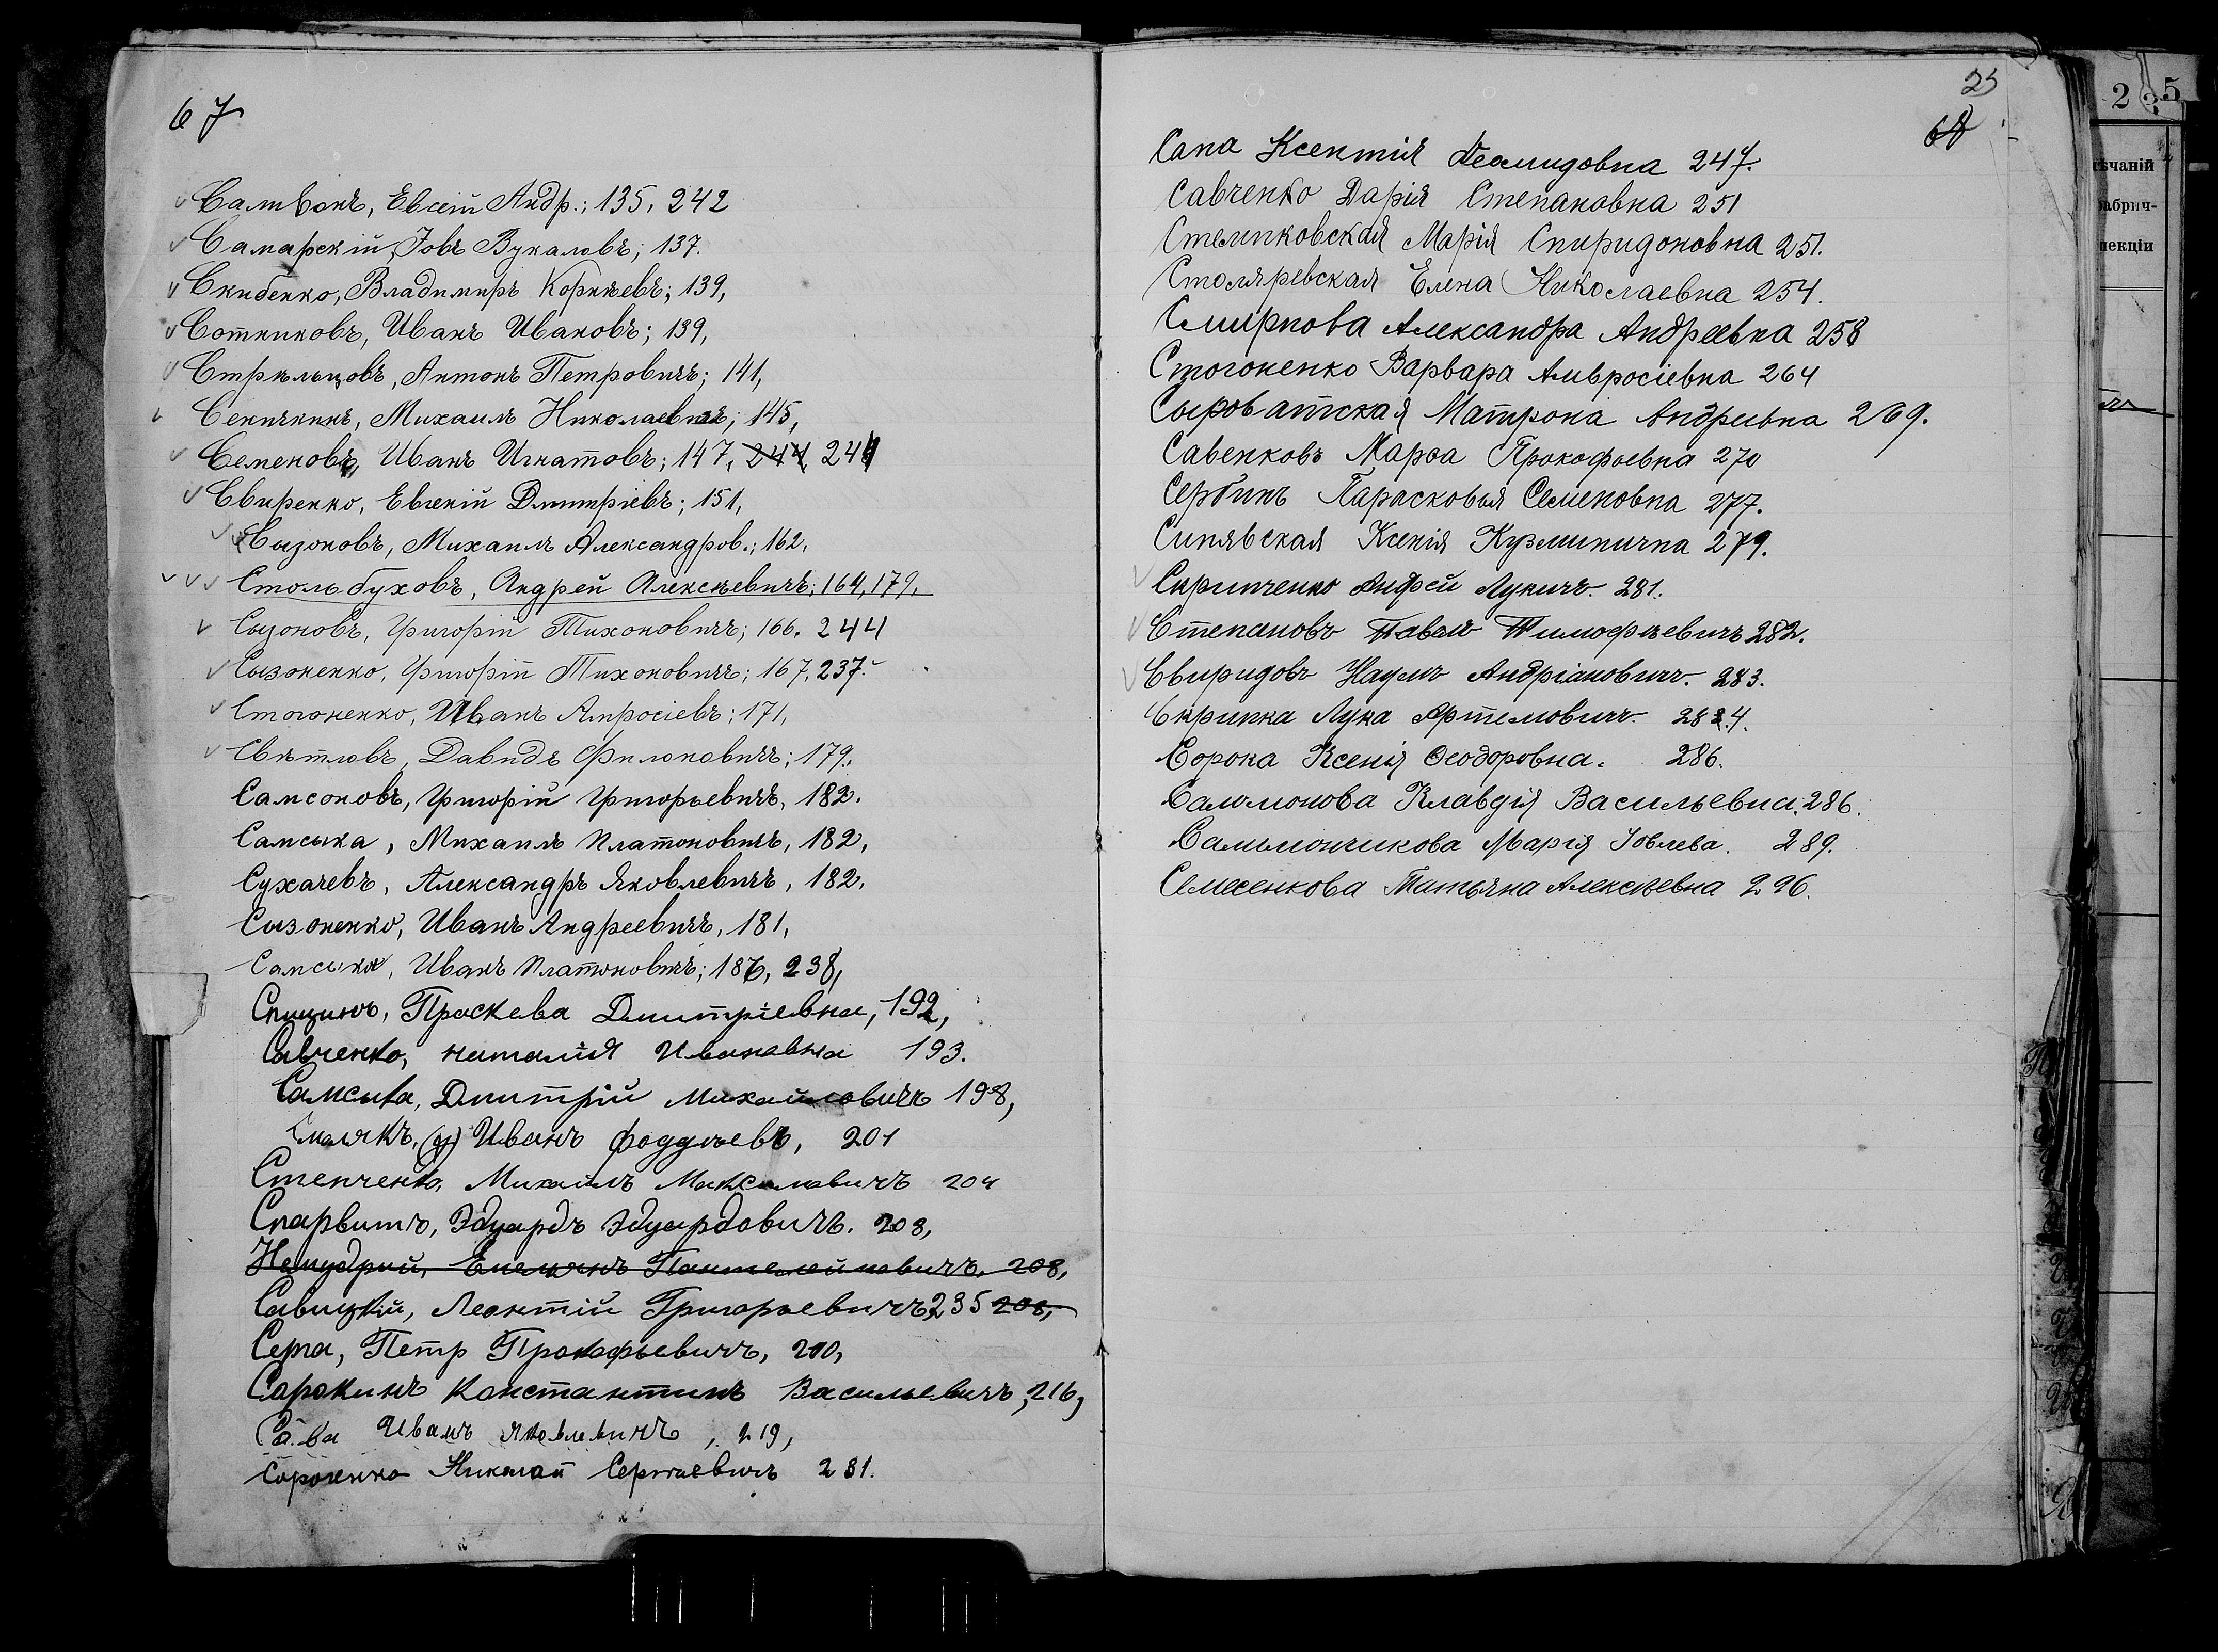 67
Саливонъ, Евсій Андр.; 135, 242
Самарскій, Іовъ Вукаловъ; 137.
Скибенко, Владимиръ Корнѣевъ; 139,
Сотниковъ, Иванъ Ивановъ; 139,
Стрѣльцовъ, Антонъ Петровичъ; 141,
Сеничкинъ, Михаилъ Николаевичъ; 145,
Семеновъ, Иванъ Игнатовъ; 147, 244, 244
Свиренко, Евгеній Дмитріевъ; 151,
Сызоновъ, Михаилъ Александров.; 162,
Стольбуховъ, Андрей Алексѣевичъ; 164, 179,
Сызоновъ, Григорій Тихоновичъ; 166. 244
Сызоненко, Григорій Тихоновичъ; 167, 237.
Стогоненко, Иванъ Амросіевъ; 171,
Свѣтловъ, Давидъ Филоновичъ; 179.
Самсоновъ, Григорій Григорьевичъ, 182.
Самсыка, Михаилъ Платоновичъ, 182,
Сухачевъ, Александръ Яковлевичъ, 182,
Сызоненко, Иванъ Андреевичъ, 181,
Самсыка, Иванъ Платоновичъ; 186, 238,
Спицинъ, Праскева Дмитріевна, 192,
Савченко, наталія Ивановна 193.
Самсыка, Дмитрій Михайловичъ 198,
Смалякъ, Иванъ фоддѣевъ, 201
Степченко, Михаилъ Максимавичъ 204
Спарвитъ, Эдуардъ Эдуардовичъ. 208,
Немудрый, Емельянъ Пантелеймавичъ, 208,
Савицкій, Леонтій Григорьевичъ, 235 208,
Серга, Петр Прокофьевичъ, 210,
Сарокинъ Константинъ Васильевичъ, 216,
Сава Иванъ Яковлевичъ, 219,
Сороненко Николай Сергѣевичъ 231.
23
68
Сапа Ксентія Деомидовна 247.
Савченко Дарія Степановна 251
Стемпковская Марія Спиридоновна 251.
Столяревская Елена Николаевна 254.
Смирнова Александра Андреевна 258
Стогоненко Варвара Амвросіевна 264
Сыроватская Матрона Андреевна 269.
Савенковъ Марѳа Прокофьевна 270
Сербинъ Парасковья Семеновна 277.
Синявская Ксенія Кузминична 279.
Скрипченко Андрей Лукичъ. 281.
Степановъ Павелъ Тимофѣевичъ 282.
Свиридовъ Наумъ Андріановичъ. 283.
Скрипка Лука Артемовичъ 284.
Сорока Ксенія Ѳеодоровна. 286.
Саломонова Клавдія Васильевна. 286.
Сальмончикова Марія Іовлева. 289.
Семесенкова Татьяна Алексѣевна 296.
2 5